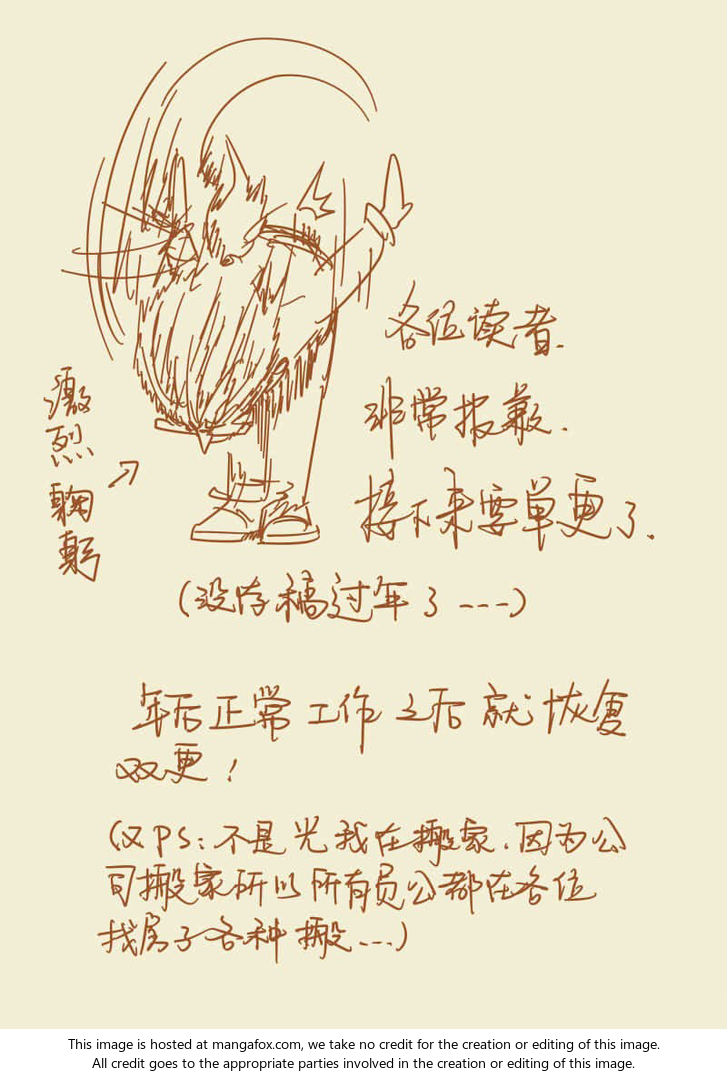 各位读者.
非常报歉.
接下来要单更了.
激烈鞠躬
(没存稿过年了---)
年后正常工作之后就恢复
双更!
(又PS:不是光我在搬家.因为公
司搬家所以所有员公都在各位
找房子各种搬...)
This image is hosted at mangafox.com, we take no credit for the creation or editing of this image.
All credit goes to the appropriate parties involved in the creation or editing of this image.